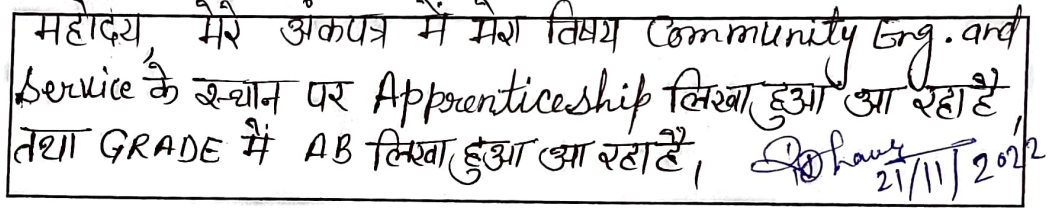 महोदय, मेरे अंकपत्र में मेरा विषय Community Eng. and
Service के स्थान पर Apprenticeship लिखा हुआ आ रहा है,
तथा GRADE में AB लिखा हुआ आ रहा है,
21/11/2022